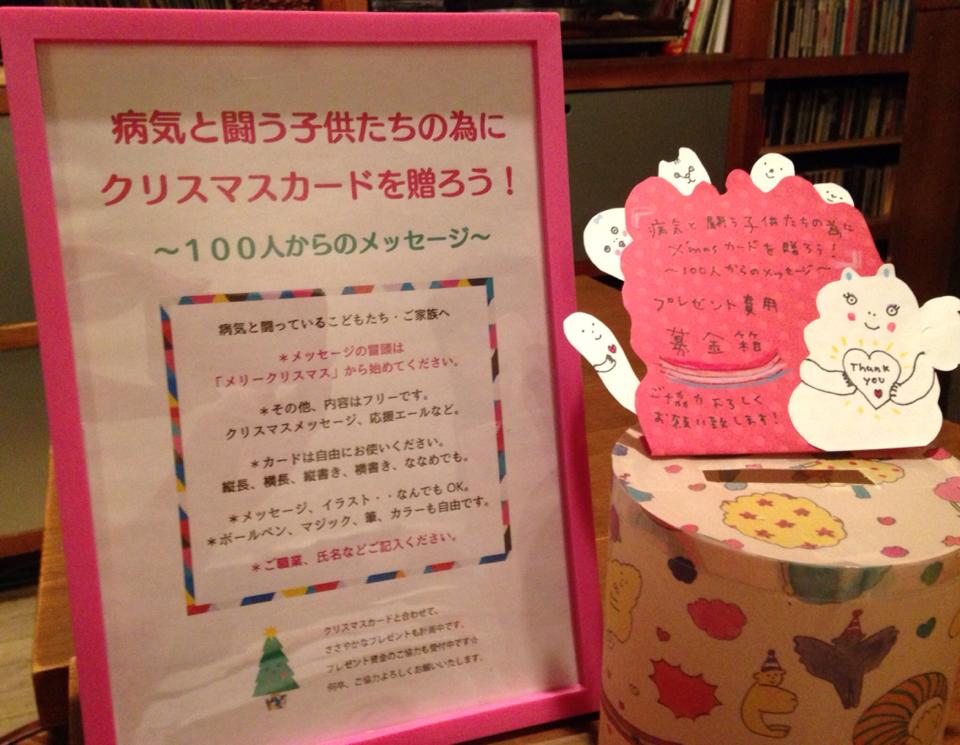 病気と闘う子供たちの為に
クリスマスカードを贈ろう！
～１００人からのメッセージ～
病気と闘っているこどもたち・ご家族へ
＊メッセージの冒頭は
「メリークリスマス」から始めてください。
＊その他、内容はフリーです。
クリスマスメッセージ、応援エールなど。
＊カードは自由にお使いください。
縦長、横長、縦書き、横書き、ななめでも。
＊メッセージ、イラスト・・なんでもOK。
＊ボールペン、マジック、筆、カラーも自由です。
＊ご職業、氏名などご記入ください。
クリスマスカードと合わせて、
ささやかなプレゼントも計画中です。
プレゼント資金のご協力も受付中です☆
何卒、ご協力よろしくお願いいたします。
病気と闘う子供たちの為に
X'masカードを贈ろう！
～100人からのメッセージ～
プレゼント費用
募金箱
ご協力よろしく
お願い致します！
Thank
you